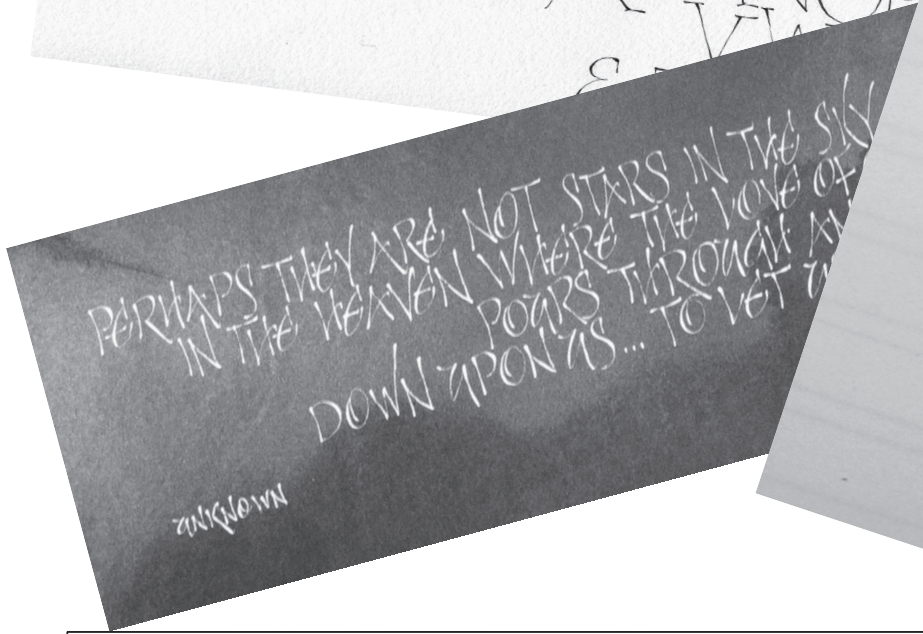 PERHAPS THEY ARE NOT STARS IN THE SKY
IN THE HEAVEN WHERE THE LOVE OF
POURS THROUGH
DOWN UPON US... TO LET
UNKNOWN
&